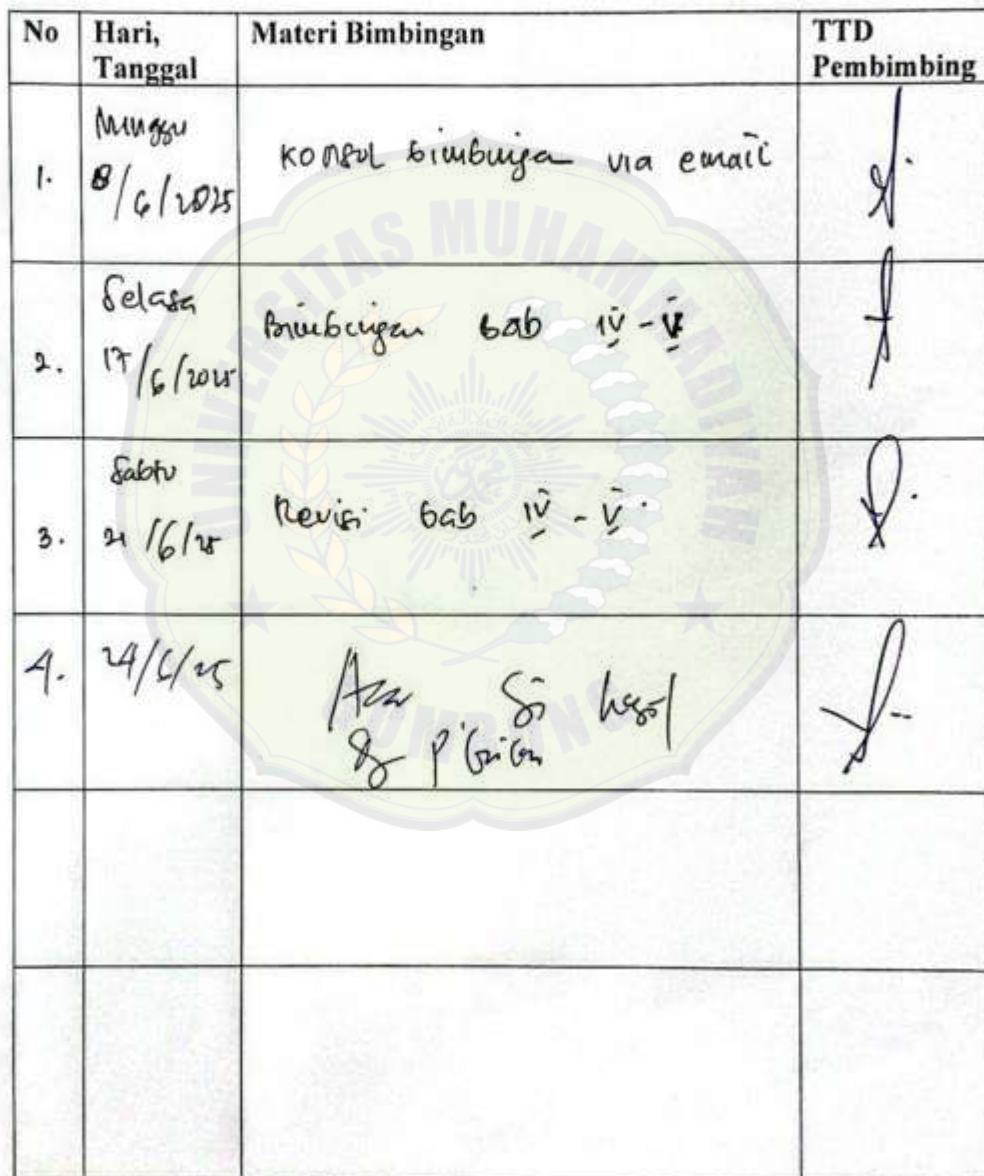 No Hari, Tanggal Materi Bimbingan TTD Pembimbing
1. Minggu 8/6/2025 Konsul bimbingan via email
2. Selasa 17/6/2025 Bimbingan bab IV - V
3. Sabtu 21/6/25 Revisi bab IV - V
4. 24/6/25 Acc hasil
UNIVERSITAS MUHAMMADIYAH
PONOROGO